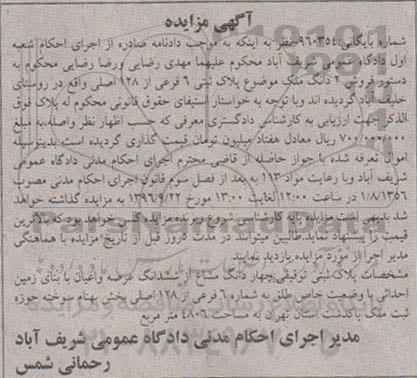 آگهی مزایده
شماره بایگانی:۹۶۰۳۵۴ نظر به اینکه به موجب دادنامه صادره از اجرای احکام شعبه
اول دادگاه عمومی شریف آباد محکوم علیهما مهدی رضایی ورضا رضایی محکوم به
دستور فروش ۴ دانگ ملک موضوع پلاک ثبتی ۶ فرعی از ۱۲۸ اصلی واقع در روستای
حلیف آباد گردیده اند وبا توجه به خواستار استیفای حقوق قانونی محکوم له پلاک فوق
الذکر جهت ارزیابی به کارشناسی دادگستری معرفی که حسب اظهار نظر واصله به مبلغ
۷۰۰/۰۰۰/۰۰۰ ریال معادل هفتاد میلیون تومان قیمت گذاری گردیده است بدینوسیله
اموال تعرفه شده با جواز حاصله از قاضی محترم اجرای احکام مدنی دادگاه عمومی
شریف آباد وبا رعایت مواد ۱۱۳ به بعد از فصل سوم قانون اجرای احکام مدنی مصوب
۱/۸/۱۳۵۶ در ساعت ۱۲:۰۰ لغایت ۱۳:۰۰ مورخ ۱۳۹۶/۹/۲۲ به مزایده گذاشته خواهد
شد بدیهی است مزایده پایه کارشناسی شروع وبرنده مزایده کسی خواهد بود که بالاترین
قیمت را پیشنهاد نماید.طالبین میتوانند در مدت ۵روز قبل از تاریخ مزایده با هماهنگی
مدیر اجرا از مورد مزایده بازدید نمایند
مشخصات پلاک ثبتی توقیفی:چهار دانگ مشاع از ششدانگ عرصه واعیان با بنای زمین
احداثی با وضعیت خاص طلق به شماره ۶ فرعی از ۱۲۸ اصلی بخش بهنام سوخته حوزه
ثبت ملک پاکدشت استان تهران به مساحت ۴۸۰۶ متر مربع
مدیر اجرای احکام مدنی دادگاه عمومی شریف آباد
رحمانی شمس